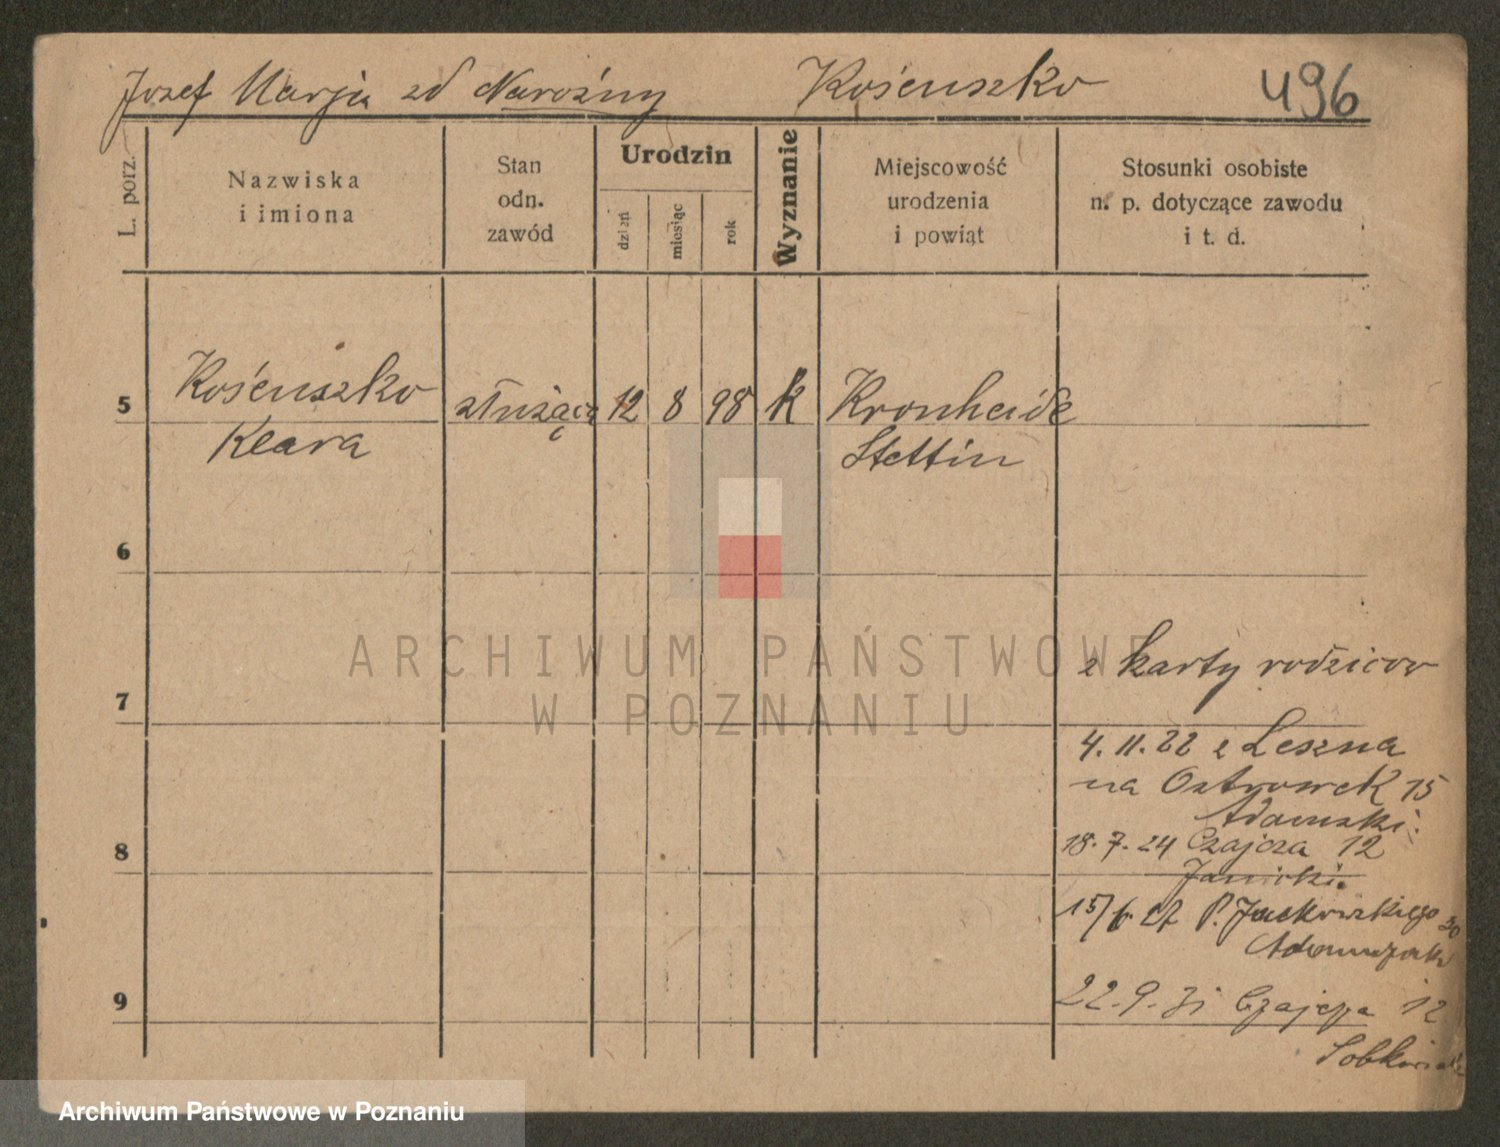 Józef Marja zd Narożny Kościuszko 496
L. porz.
Nazwiska
i imiona
Stan
odn.
zawód
Urodzin
dzień
miesiąc
rok
Wyznanie
Miejscowość
urodzenia
i powiąt
Stosunki osobiste
n. p. dotyczące zawodu
i t. d.
5 Kościuszko służąca 12 8 98 k Kronheide
Klara Stettin
6
z karty rodziców
7
4.11.22 z Leszna
na Ostrówek 15
Adamski
18.7.24 Czajcza 12
8
Janicki
15/6 27 P. Jackowskiego 30
Adamczak
22.9.31 Czajcza 12
9
ARCHIWUM PAŃSTWOWE
W POZNANIU
Archiwum Państwowe w Poznaniu